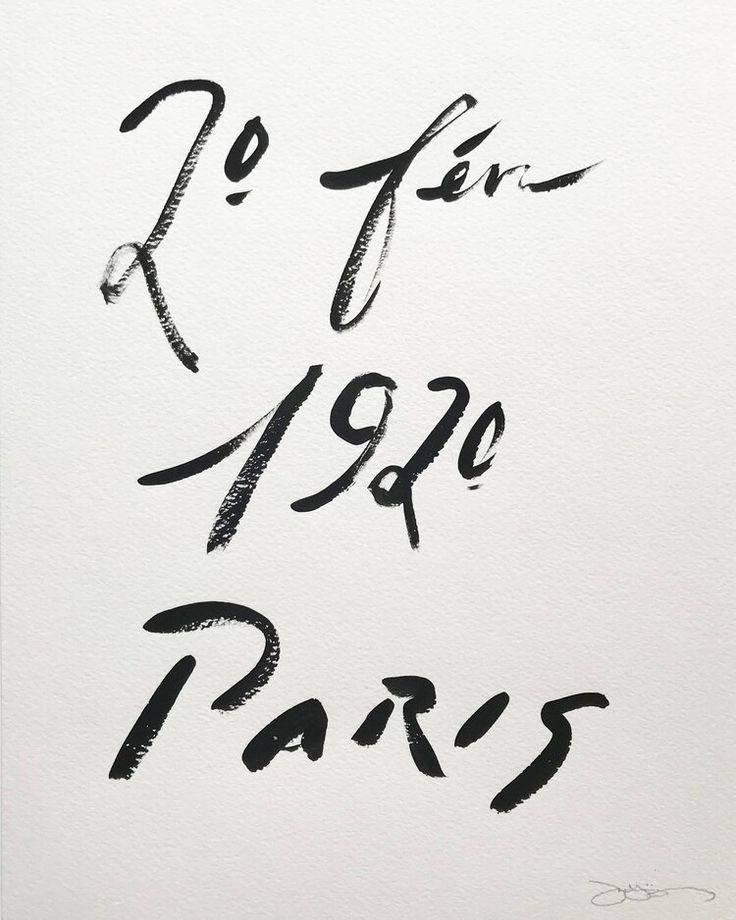 20 fév
1920
PARIS